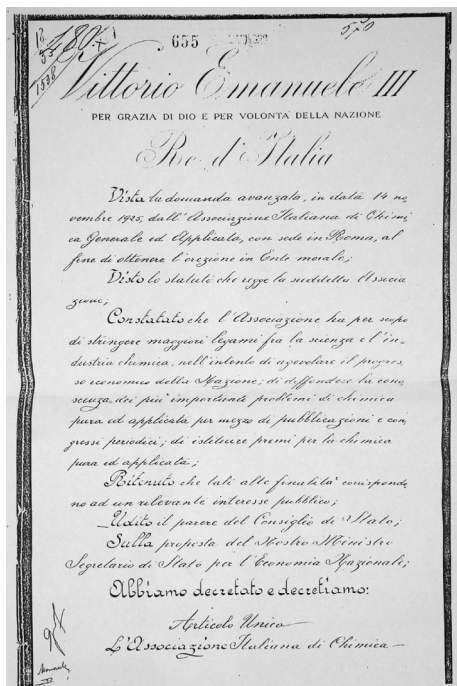 655
570
1536
Vittorio Emanuele III
PER GRAZIA DI DIO E PER VOLONTA' DELLA NAZIONE
Re d'Italia
Vista la domanda avanzata, in data 14 no
vembre 1925, dall'Associazione Italiana di Chimi
ca Generale ed Applicata, con sede in Roma, al
fine di ottenere l'erezione in Ente morale;
Visto lo statuto che regge la suddetta Associa
zione;
Constatato che l'Associazione ha per scopo
di stringere maggiori legami fra la scienza e l'in-
dustria chimica, nell'intento di agevolare il progres
so economico della Nazione; di diffondere la cono
scenza dei più importanti problemi di chimica
pura ed applicata per mezzo di pubblicazioni e con
gressi periodici; di istituire premi per la chimica
pura ed applicata;
Ritenuto che tali alte finalità corrispondo
no ad un rilevante interesse pubblico;
Udito il parere del Consiglio di Stato;
Sulla proposta del Nostro Ministro
Segretario di Stato per l'Economia Nazionale;
Abbiamo decretato e decretiamo:
Articolo Unico
L'Associazione Italiana di Chimica